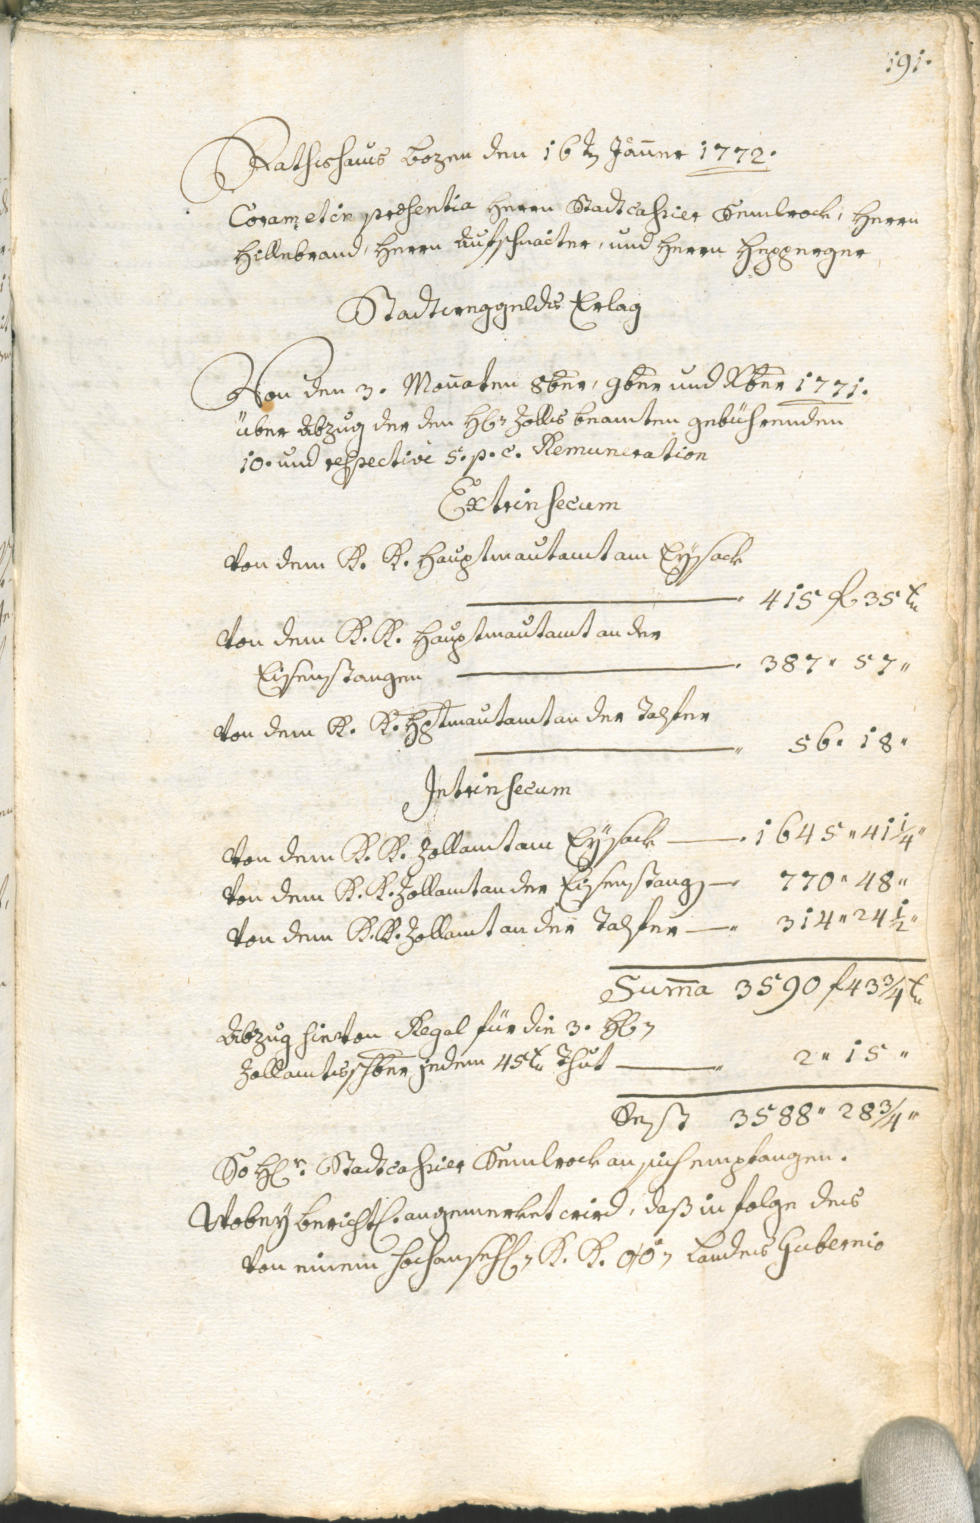 191.
Rathshaus Bozen den 16tn Jäner 1772.
Coram et in præsentia Herrn Stadtcassier Kemlrock, Herrn
Hillebrand, Herrn Aufschnaiter, und Herrn Hepperger
Stadtweggelds Erlag
Von den 3. Monaten 8ber, 9ber und Xber 1771.
über Abzug der den Zolls beamten gebührenden
10. und respective 5. p. c. Remuneration
Extrinsecum
Von dem K. K. Hauptmautamt am Eysack
415 f 35 x
Von dem K. K. Hauptmautamt an der
Eisenstangen 387 " 57 "
Von dem K. K. Hptmautamt an der Talfer
56 " 18 "
Intrinsecum
Von dem K. K. Zollamt am Eysack 1645 " 41 1/4 "
Von dem K. K. Zollamt an der Eisenstang 770 " 48 "
Von dem K. K. Zollamt an der Talfer 314 " 24 1/2 "
Summa 3590 f 43 3/4 x
Abzug hievon Regal für die 3.
Zollamtsschber jedem 45 x Thut 2 " 15 "
Rest 3588 " 28 3/4 "
So Hr. Stadtcassier Kemlrock an sich empfangen.
Wobey angemerket wird, daß in folge des
von einem K. K. OÖ Landes Gubernio